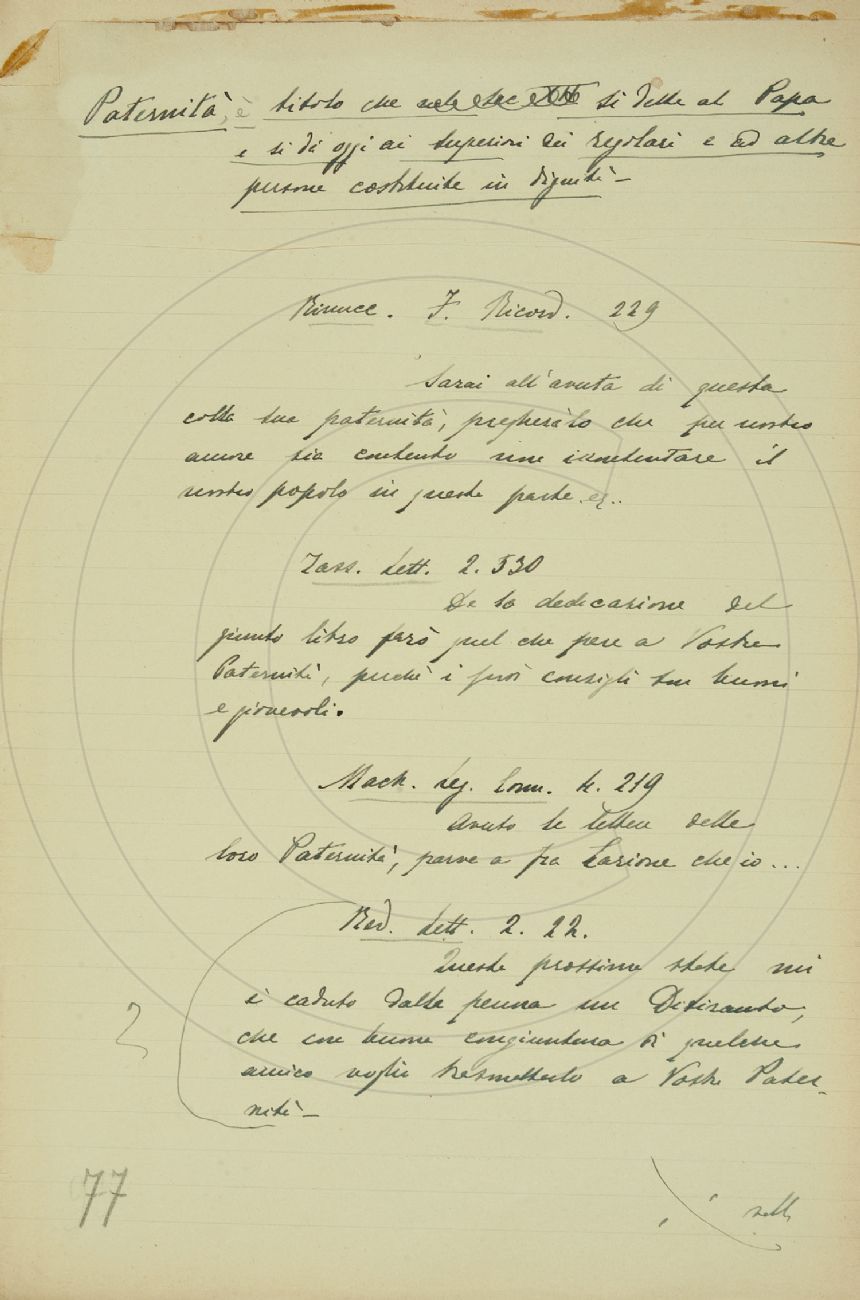 Paternità, è titolo che si dette al Papa
e si dà oggi ai superiori dei regolari e ad altre
persone costituite in dignità –
Rinucc. F. Ricord. 229
Sarai all'avuta di questa
colla sua paternità, pregheràlo che per nostro
amore sia contento non iscontentare il
nostro popolo in questa parte.
Tass. Lett. 2. 530
De la dedicazione del
quinto libro farò quel che pare a Vostra
Paternità, perchè i suoi consigli son buoni
e giovevoli.
Mach. Leg. Comm. 4. 219
Avuto le lettere delle
loro Paternità, parve a fra Lazione che io ...
Red. Lett. 2. 22.
Questa prossima state mi
è caduto dalla penna un Ditirambo,
che con buona congiuntura di qualche
amico voglio trasmetterlo a Vostra Pater-
nità –
77